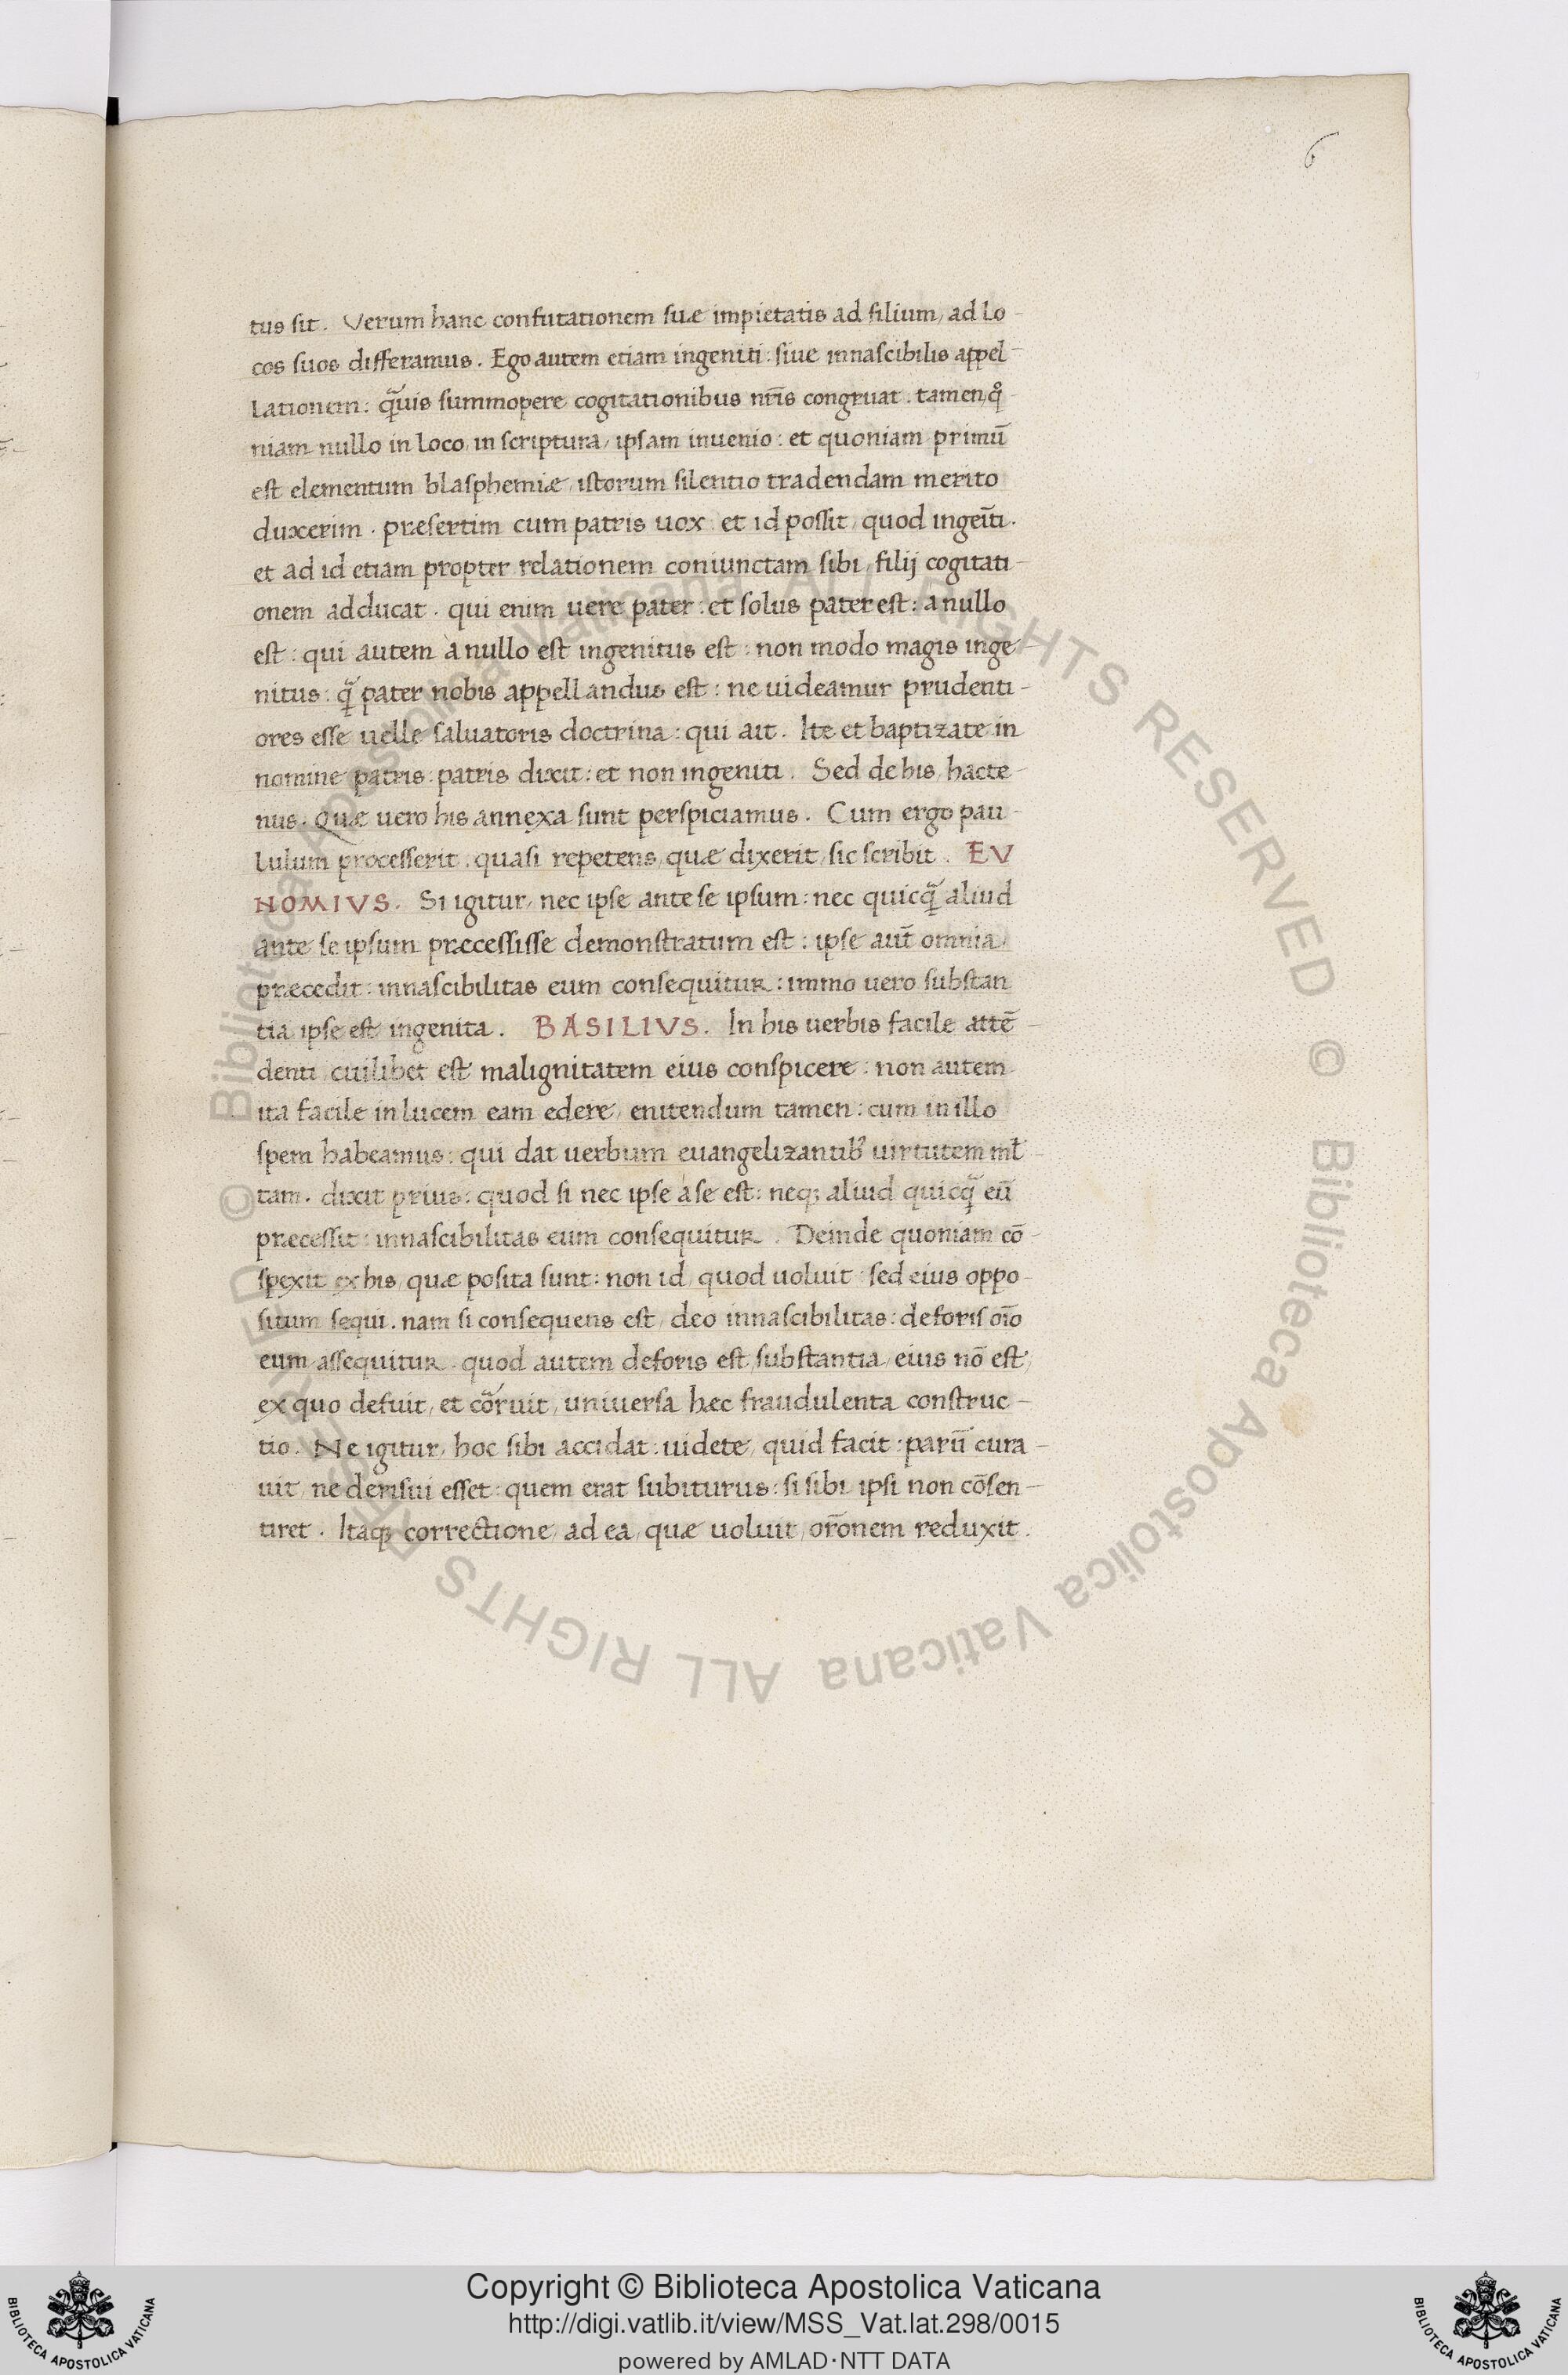 6
tus sit. Verum hanc confutationem suæ impietatis ad filium, ad lo-
cos suos differamus. Ego autem etiam ingeniti: siue innascibilis appel-
lationem: q̃uis summopere cogitationibus nr̃is congruat. tamen, qº-
niam nullo in loco, in scriptura, ipsam inuenio: et quoniam primū
est elementum blasphemiæ, istorum silentio tradendam merito
duxerim. præsertim cum patris uox et id possit, quod ingeīti.
et ad id etiam propter relationem coniunctam sibi, filij cogitati-
onem adducat. qui enim uere pater: et solus pater est: a nullo
est: qui autem à nullo est ingenitus est: non modo magis inge-
nitus: q̃ pater nobis appellandus est: ne uideamur prudenti-
ores esse uelle saluatoris doctrina: qui ait. Ite et baptizate in
nomine patris: patris dixit: et non ingeniti. Sed de his, hacte-
nus. Quæ uero his annexa sunt perspiciamus. Cum ergo pau-
lulum processerit: quasi repetens, quæ dixerit, sic scribit. EV
NOMIVS. Si igitur, nec ipse ante se ipsum: nec quicq̃ aliud
ante se ipsum præcessisse demonstratum est: ipse aut̃ omnia
præcedit: innascibilitas eum consequitur: immo uero substan
tia ipse est ingenita. BASILIVS. In his uerbis facile attē-
denti cuilibet est malignitatem eius conspicere: non autem
ita facile in lucem eam edere, enitendum tamen: cum in illo
spem habeamus: qui dat uerbum euangelizantibꝰ uirtutem ml̃-
tam. dixit prius: quod si nec ipse à se est: neqꝫ aliud quicq̃ eū
præcessit: innascibilitas eum consequitur. Deinde quoniam cō-
spexit ex his, quæ posita sunt: non id, quod uoluit: sed eius oppo-
situm sequi. nam si consequens est, deo innascibilitas: deforis oīo
eum assequitur. quod autem deforis est, substantia, eius nō est,
ex quo defuit, et cõruit, uniuersa hæc fraudulenta construc-
tio. Ne igitur, hoc sibi accidat: uidete, quid facit: parū cura-
uit, ne derisui esset: quem erat subiturus: si sibi ipsi non cōsen-
tiret. Itaqꝫ correctione, ad ea, quæ uoluit, or̃onem reduxit.
© Biblioteca Apostolica Vaticana ALL RIGHTS RESERVED
© Biblioteca Apostolica Vaticana ALL RIGHTS RESERVED
Copyright © Biblioteca Apostolica Vaticana
http://digi.vatlib.it/view/MSS_Vat.lat.298/0015
powered by AMLAD·NTT DATA
BIBLIOTECA APOSTOLICA VATICANA
BIBLIOTECA APOSTOLICA VATICANA